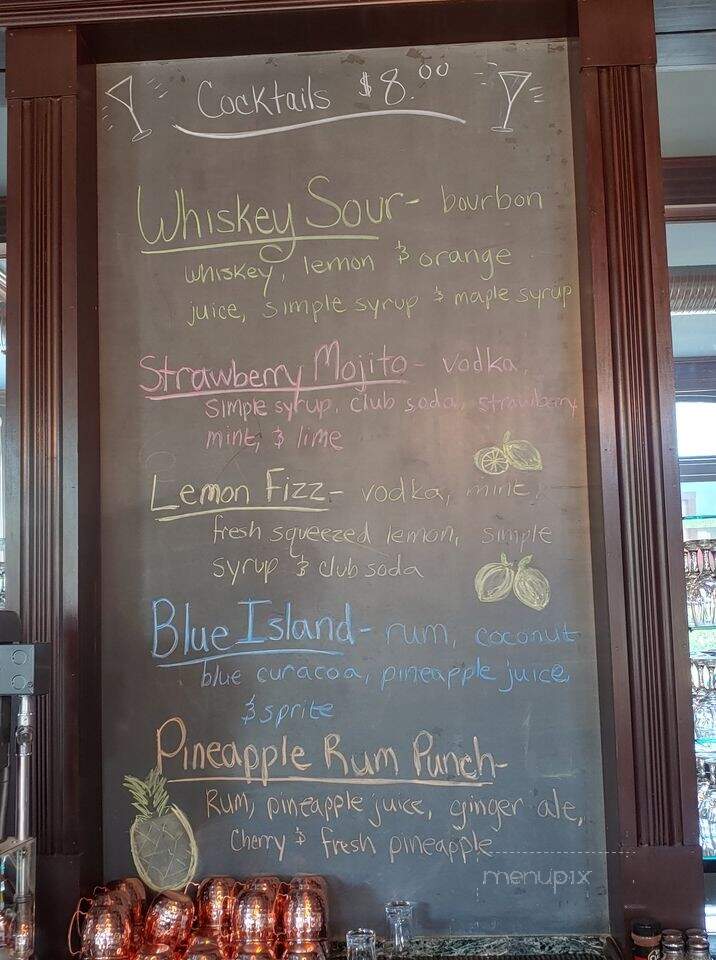 Cocktails $8.00
Whiskey Sour- bourbon
whiskey, lemon & orange
juice, simple syrup & maple syrup
Strawberry Mojito- vodka,
simple syrup, club soda, strawberry
mint, & lime
Lemon Fizz- vodka, mint,
fresh squeezed lemon, simple
syrup & club soda
Blue Island- rum, coconut
blue curacoa, pineapple juice,
& sprite
Pineapple Rum Punch-
Rum, pineapple juice, ginger ale,
Cherry & fresh pineapple
menupix